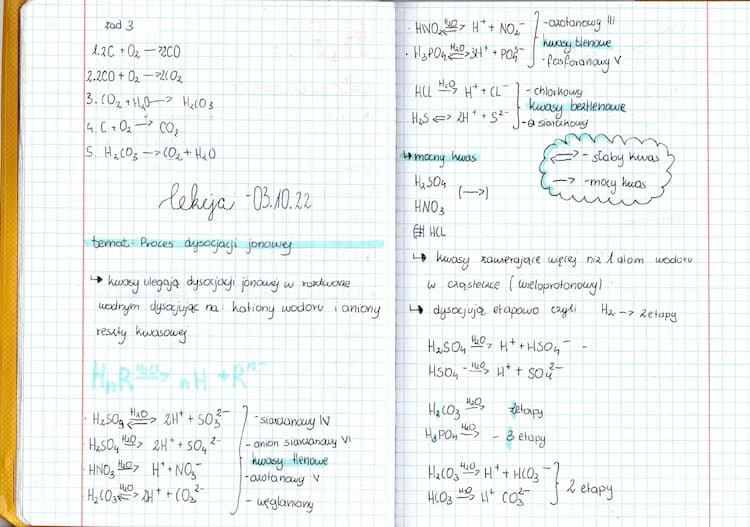 zad 3
1. 2C + O₂ → 2CO
2. 2CO + O₂ → 2CO₂
3. CO₂ + H₂O → H₂CO₃
4. C + O₂ → CO₂
5. H₂CO₃ → CO₂ + H₂O
lekcja - 03.10.22
temat: Proces dysocjacji jonowej
↳ kwasy ulegają dysocjacji jonowej w roztworze
wodnym dysocjując na: kationy wodoru i aniony
reszty kwasowej
HnR H₂O→ nH + Rⁿ⁻
· H₂SO₃ H₂O⇌ 2H⁺ + SO₃²⁻ - siarczanowy IV
· H₂SO₄ H₂O→ 2H⁺ + SO₄²⁻ - anion siarczanowy VI
kwasy tlenowe
· HNO₃ H₂O→ H⁺ + NO₃⁻ - azotanowy V
· H₂CO₃ H₂O⇌ 2H⁺ + CO₃²⁻ - węglaniany
· HNO₂ H₂O⇌ H⁺ + NO₂⁻ - azotanowy III
kwasy tlenowe
· H₃PO₄ H₂O⇌ 3H⁺ + PO₄³⁻ · fosforanowy V
HCL H₂O→ H⁺ + CL⁻ - chlorkowy
kwasy beztlenowe
H₂S ⇌ 2H⁺ + S²⁻ - siarczkowy
↳ mocny kwas
⇌ - słaby kwas
→ - mocy kwas
H₂SO₄
(→)
HNO₃
HCL
↳ kwasy zawierające więcej niż 1 atom wodoru
w cząsteczce (wieloprotonowy)
↳ dysocjują etapowo czyli H₂ → 2 etapy
H₂SO₄ H₂O→ H⁺ + HSO₄⁻ -
HSO₄⁻ H₂O→ H⁺ + SO₄²⁻
H₂CO₃ H₂O→ 2 etapy
H₃PO₄ H₂O→ - 3 etapy
H₂CO₃ H₂O→ H⁺ + HCO₃⁻
2 etapy
HCO₃ H₂O→ H⁺ CO₃²⁻